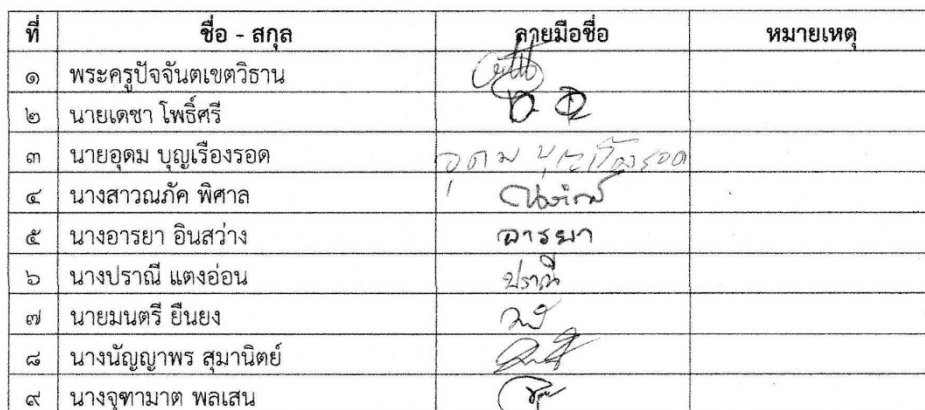 ที่ ชื่อ - สกุล ลายมือชื่อ หมายเหตุ
๑ พระครูปัจจันตเขตวิธาน
๒ นายเดชา โพธิ์ศรี
๓ นายอุดม บุญเรืองรอด อุดม บุญเรืองรอด
๔ นางสาวณภัค พิศาล
๕ นางอารยา อินสว่าง อารยา
๖ นางปราณี แตงอ่อน ปราณี
๗ นายมนตรี ยืนยง
๘ นางนัญญาพร สุมานิตย์
๙ นางจุฑามาต พลเสน